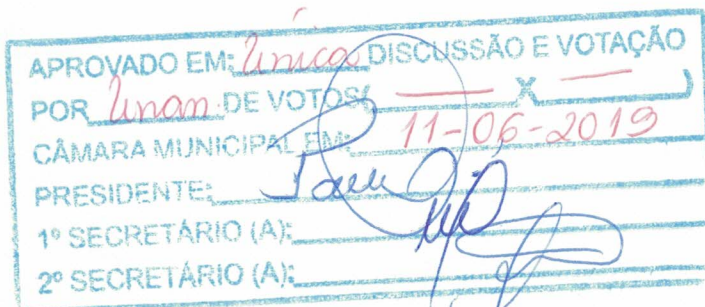 APROVADO EM: Única DISCUSSÃO E VOTAÇÃO
POR Unan DE VOTOS( — X — )
CÂMARA MUNICIPAL EM: 11-06-2019
PRESIDENTE:
1º SECRETÁRIO (A):
2º SECRETÁRIO (A):